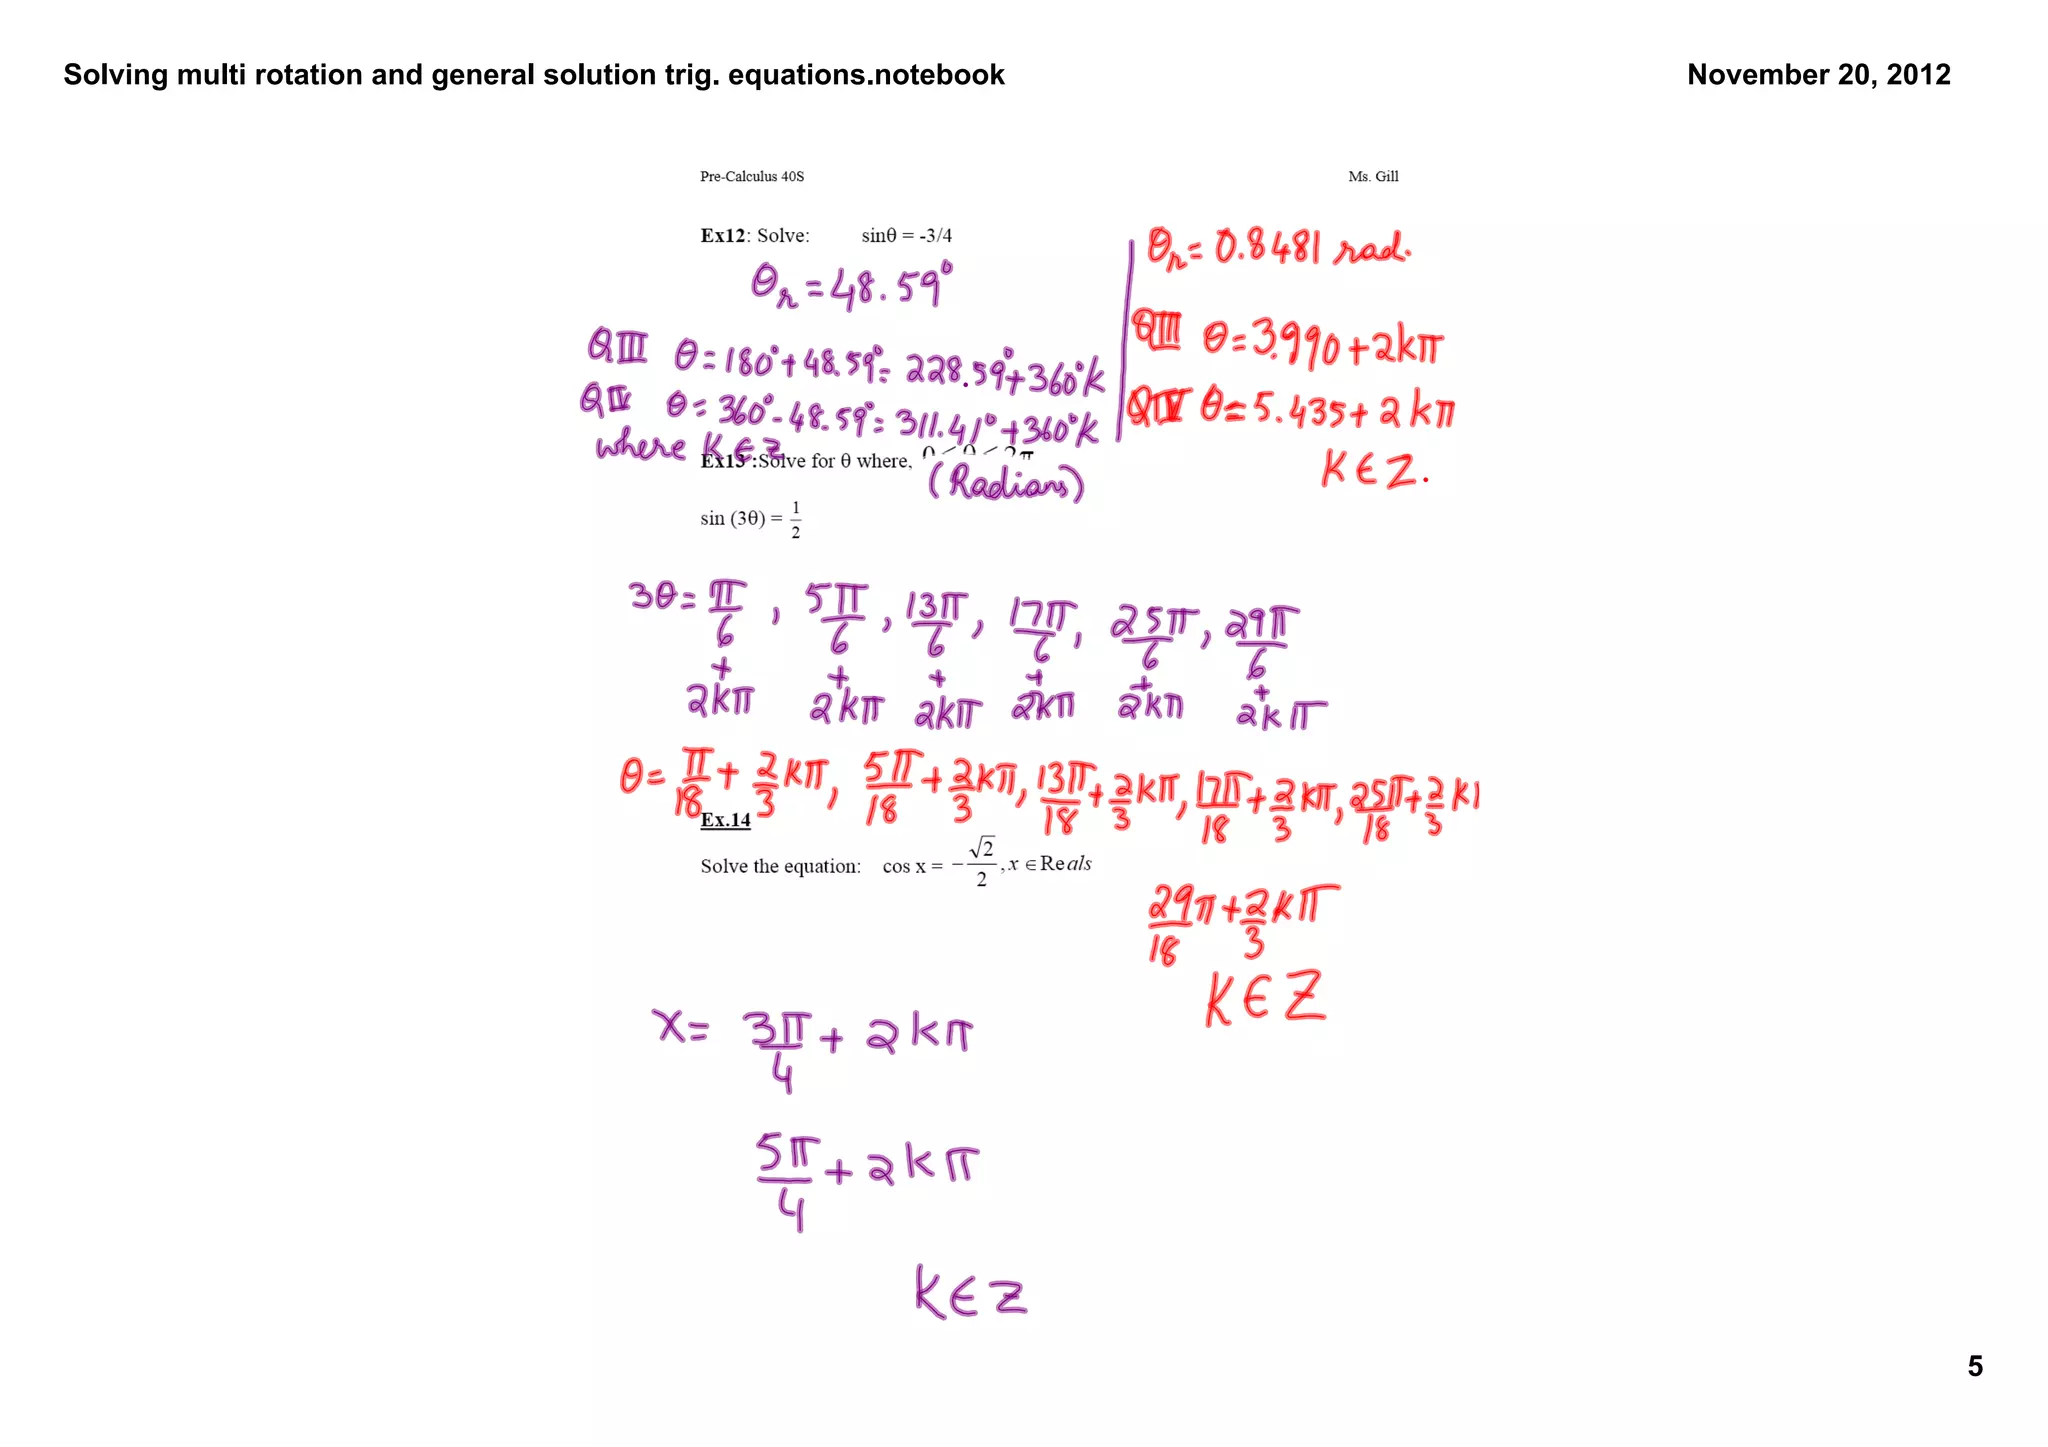 Solving multi rotation and general solution trig. equations.notebook
November 20, 2012
Pre-Calculus 40S
Ms. Gill
Ex12: Solve: sinθ = -3/4
θr = 48.59°
QIII θ = 180° + 48.59° = 228.59° + 360°k
QIV θ = 360° - 48.59° = 311.41° + 360°k
where K ∈ Z
θr = 0.8481 rad.
QIII θ = 3.990 + 2kπ
QIV θ = 5.435 + 2kπ
K ∈ Z.
Ex13 :Solve for θ where, 0 ≤ θ ≤ 2π
(Radians)
sin (3θ) = 1/2
3θ = π/6, 5π/6, 13π/6, 17π/6, 25π/6, 29π/6
+ + + + + +
2kπ 2kπ 2kπ 2kπ 2kπ 2kπ
θ = π/18 + 2/3 kπ, 5π/18 + 2/3 kπ, 13π/18 + 2/3 kπ, 17π/18 + 2/3 kπ, 25π/18 + 2/3 k
29π/18 + 2/3 kπ
K ∈ Z
Ex.14
Solve the equation: cos x = -√2/2, x ∈ Reals
x = 3π/4 + 2kπ
5π/4 + 2kπ
k ∈ Z
5